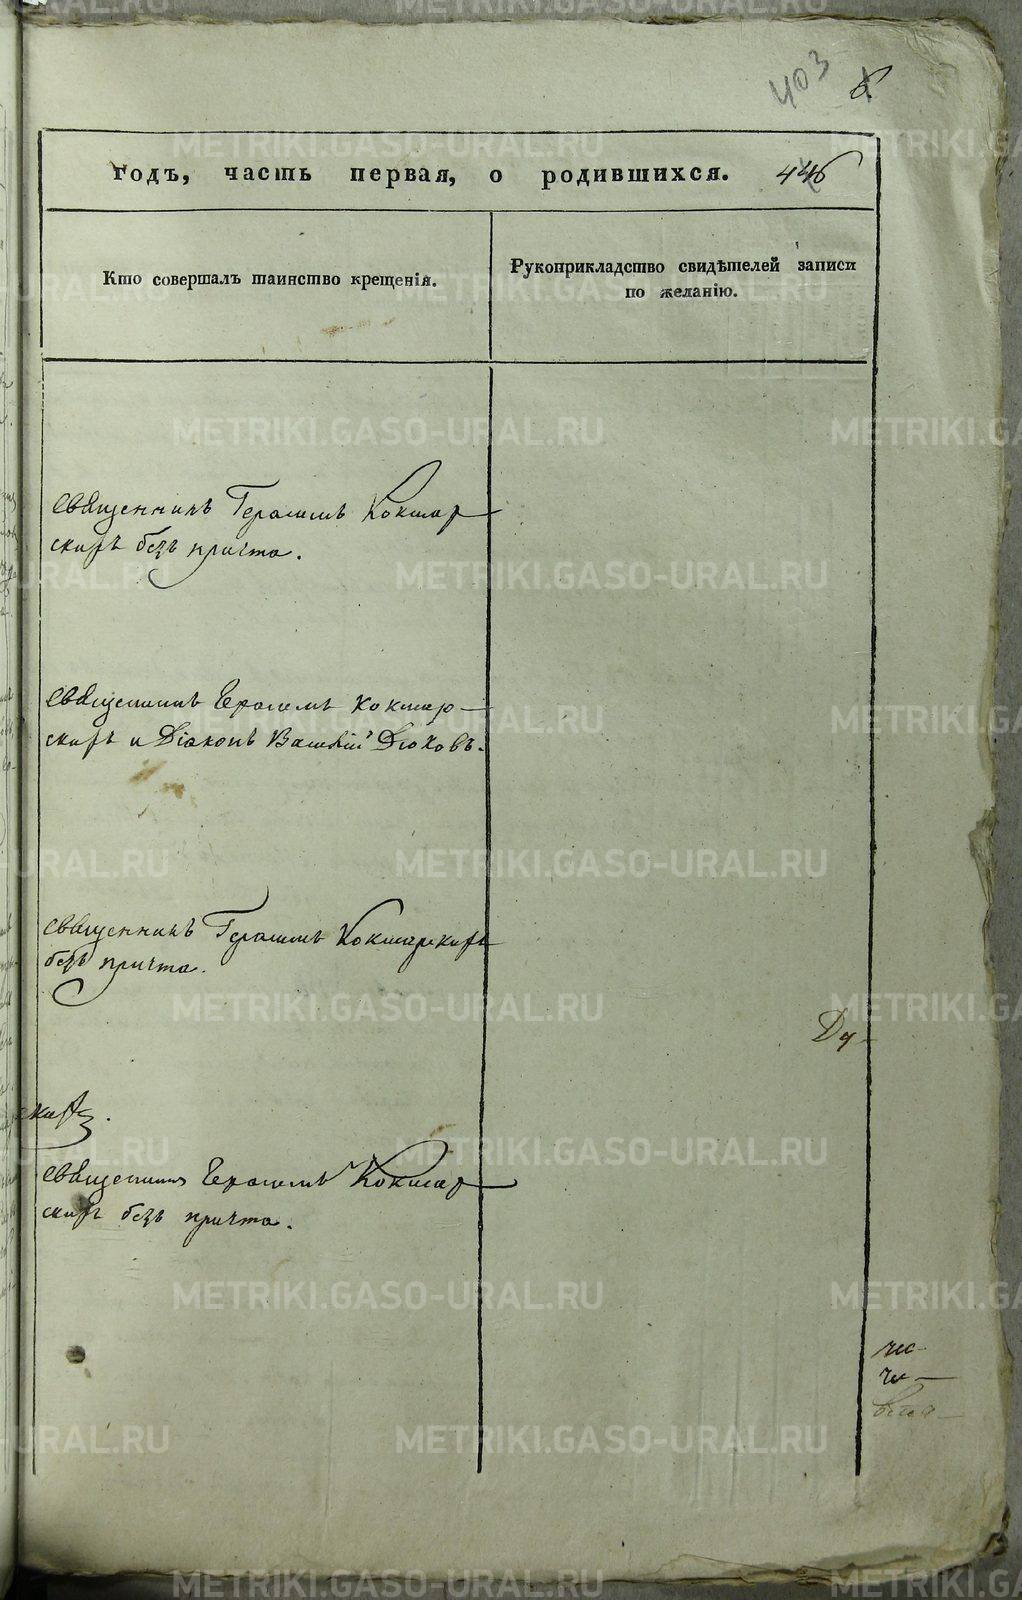 403 6
Годъ, часть первая, о родившихся. 446
Кто совершалъ таинство крещенія.
Рукоприкладство свидѣтелей записи
по желанію.
Священникъ Герасимъ Кокшар-
скихъ безъ причта.
Священникъ Герасимъ Кокшар-
скихъ и Діаконъ Василій Дюковъ.
Священникъ Герасимъ Кокшарскихъ
безъ причта.
Ду-
Священникъ Герасимъ Кокшар-
скихъ безъ причта.
METRIKI.GASO-URAL.RU